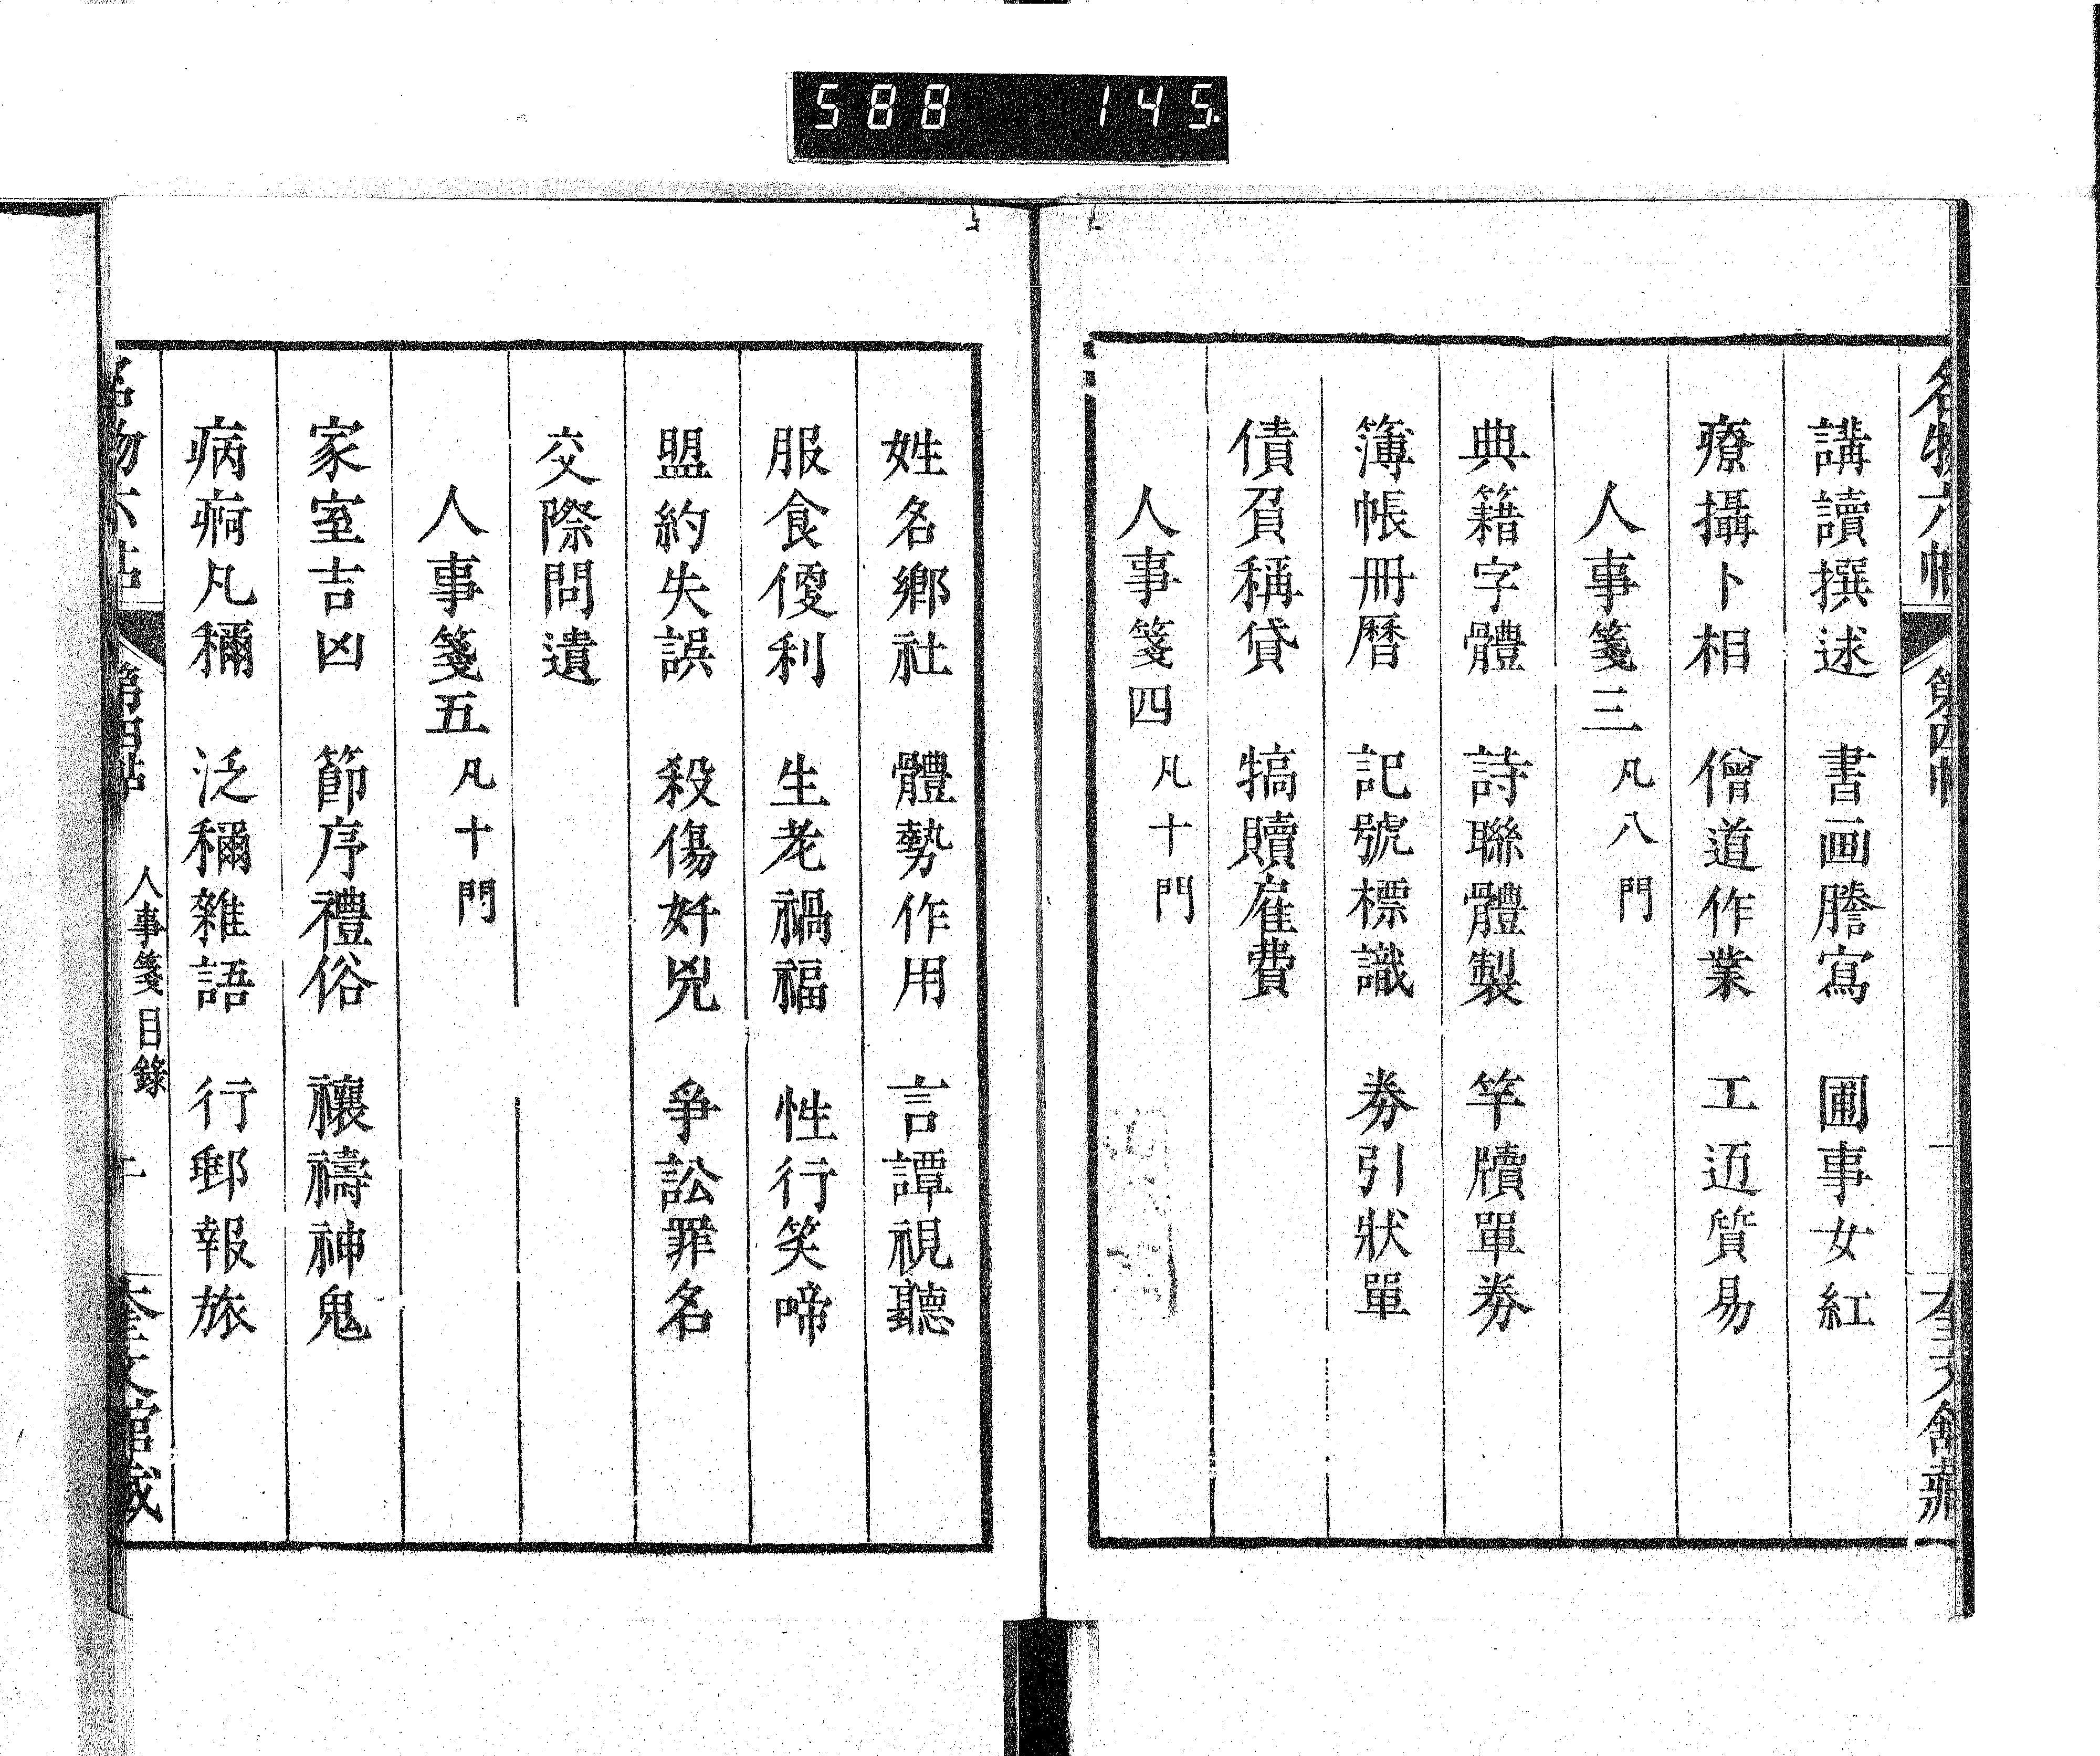 588 145.
名物六帖 第四帖 奎文館藏
講讀撰述 書画謄寫 圃事女紅
療攝卜相 僧道作業 工近貿易
人事箋三 凡八門
典籍字體 詩聯體製 竿牘單劵
簿帳冊曆 記號標識 劵引狀單
債負稱貸 犒贖雇費
人事箋四 凡十門
姓名鄉社 體勢作用 言譚視聽
服食優利 生老禍福 性行笑啼
盟約失誤 殺傷奸兇 爭訟罪名
交際問遺
人事箋五 凡十門
家室吉凶 節序禮俗 禳禱神鬼
病痾凡稱 泛稱雜語 行郵報旅
名物六帖 第四帖 人事箋目錄 奎文館藏